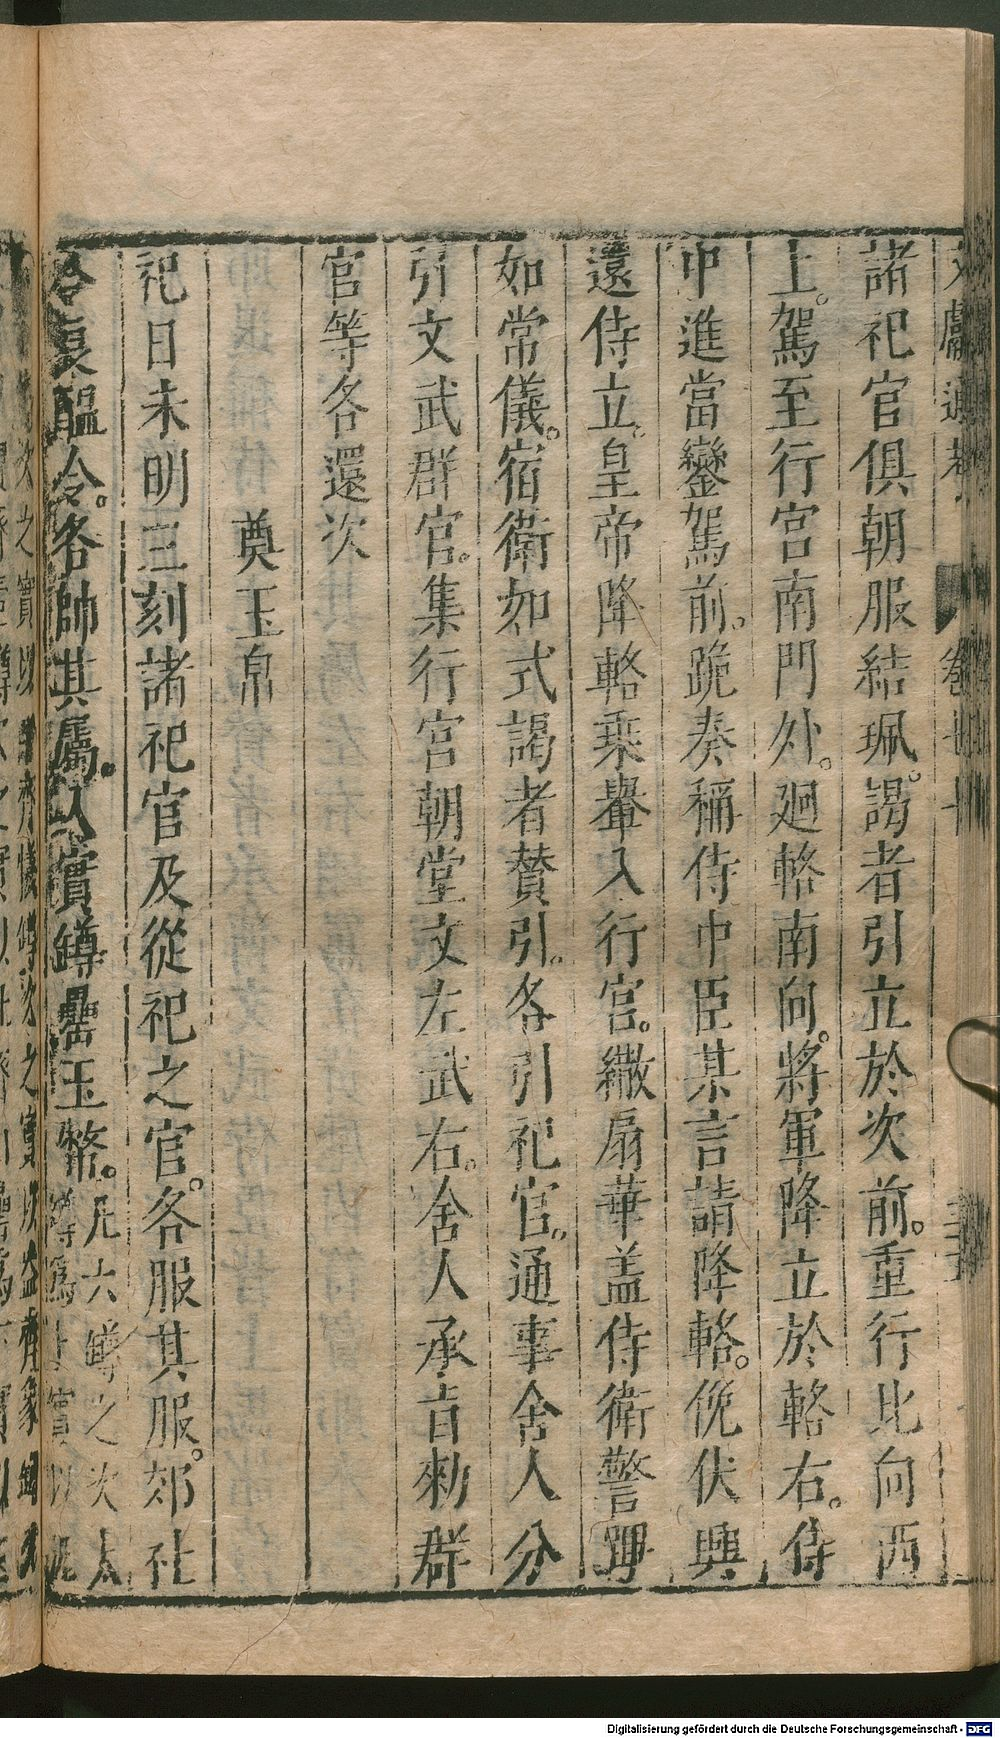 文獻通考 卷七十
諸祀官俱朝服結珮。謁者引立於次前。重行北向西
上。駕至行宮南門外。廻輅南向。將軍降立於輅右。侍
中進當鑾駕前。跪奏稱侍中臣某言請降輅。俛伏興
還侍立。皇帝降輅乘轝入行宮。繖扇華盖侍衛警蹕
如常儀。宿衛如式謁者賛引。各引祀官。通事舍人分
引文武群官。集行宮朝堂文左武右。舍人承旨勑群
官等各還次
奠玉帛
祀日未明三刻諸祀官及從祀之官。各服其服。郊社
令良醞令。各帥其屬。入實罇罍玉幣。凡六罇之次太
罇爲上實以泥
Digitalisierung gefördert durch die Deutsche Forschungsgemeinschaft - DFG